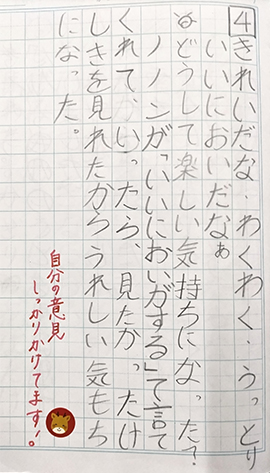 4 きれいだな・わくわく・うっとり
いいにおいだなぁ
などうして楽しい気持ちになった?
ノノンが「いいにおいがする」て言て
くれて、いったら、見たかったけ
しきを見れたからうれしい気もち
になった。
自分の意見
しっかりかけてます!